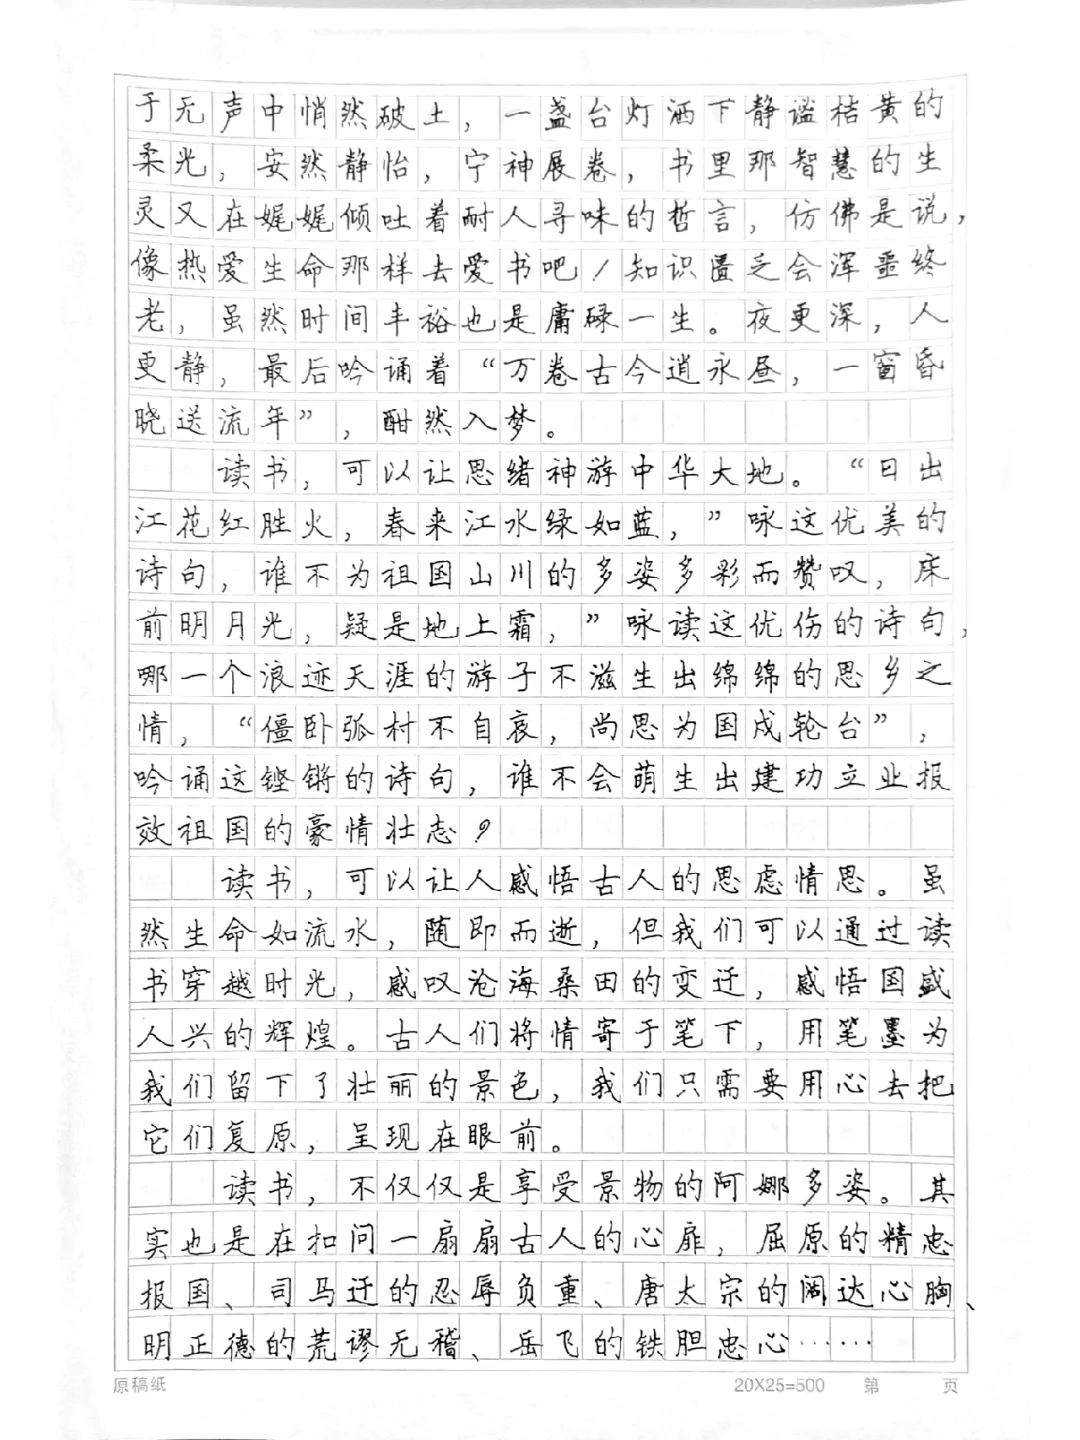 于无声中悄然破土，一盏台灯洒下静谧桔黄的
柔光，安然静怡，宁神展卷，书里那智慧的生
灵又在娓娓倾吐着耐人寻味的哲言，仿佛是说，
像热爱生命那样去爱书吧！知识匮乏会浑噩终
老，虽然时间丰裕也是庸碌一生。夜更深，人
更静，最后吟诵着“万卷古今逍永昼，一窗昏
晓送流年”，酣然入梦。
读书，可以让思绪神游中华大地。“日出
江花红胜火，春来江水绿如蓝，”咏这优美的
诗句，谁不为祖国山川的多姿多彩而赞叹，床
前明月光，疑是地上霜，”咏读这优伤的诗句，
哪一个浪迹天涯的游子不滋生出绵绵的思乡之
情，“僵卧弧村不自哀，尚思为国戍轮台”，
吟诵这铿锵的诗句，谁不会萌生出建功立业报
效祖国的豪情壮志？
读书，可以让人感悟古人的思虑情思。虽
然生命如流水，随即而逝，但我们可以通过读
书穿越时光，感叹沧海桑田的变迁，感悟国盛
人兴的辉煌。古人们将情寄于笔下，用笔墨为
我们留下了壮丽的景色，我们只需要用心去把
它们复原，呈现在眼前。
读书，不仅仅是享受景物的阿娜多姿。其
实也是在扣问一扇扇古人的心扉，屈原的精忠
报国、司马迁的忍辱负重、唐太宗的阔达心胸、
明正德的荒谬无稽、岳飞的铁胆忠心……
原稿纸 20X25=500 第 页